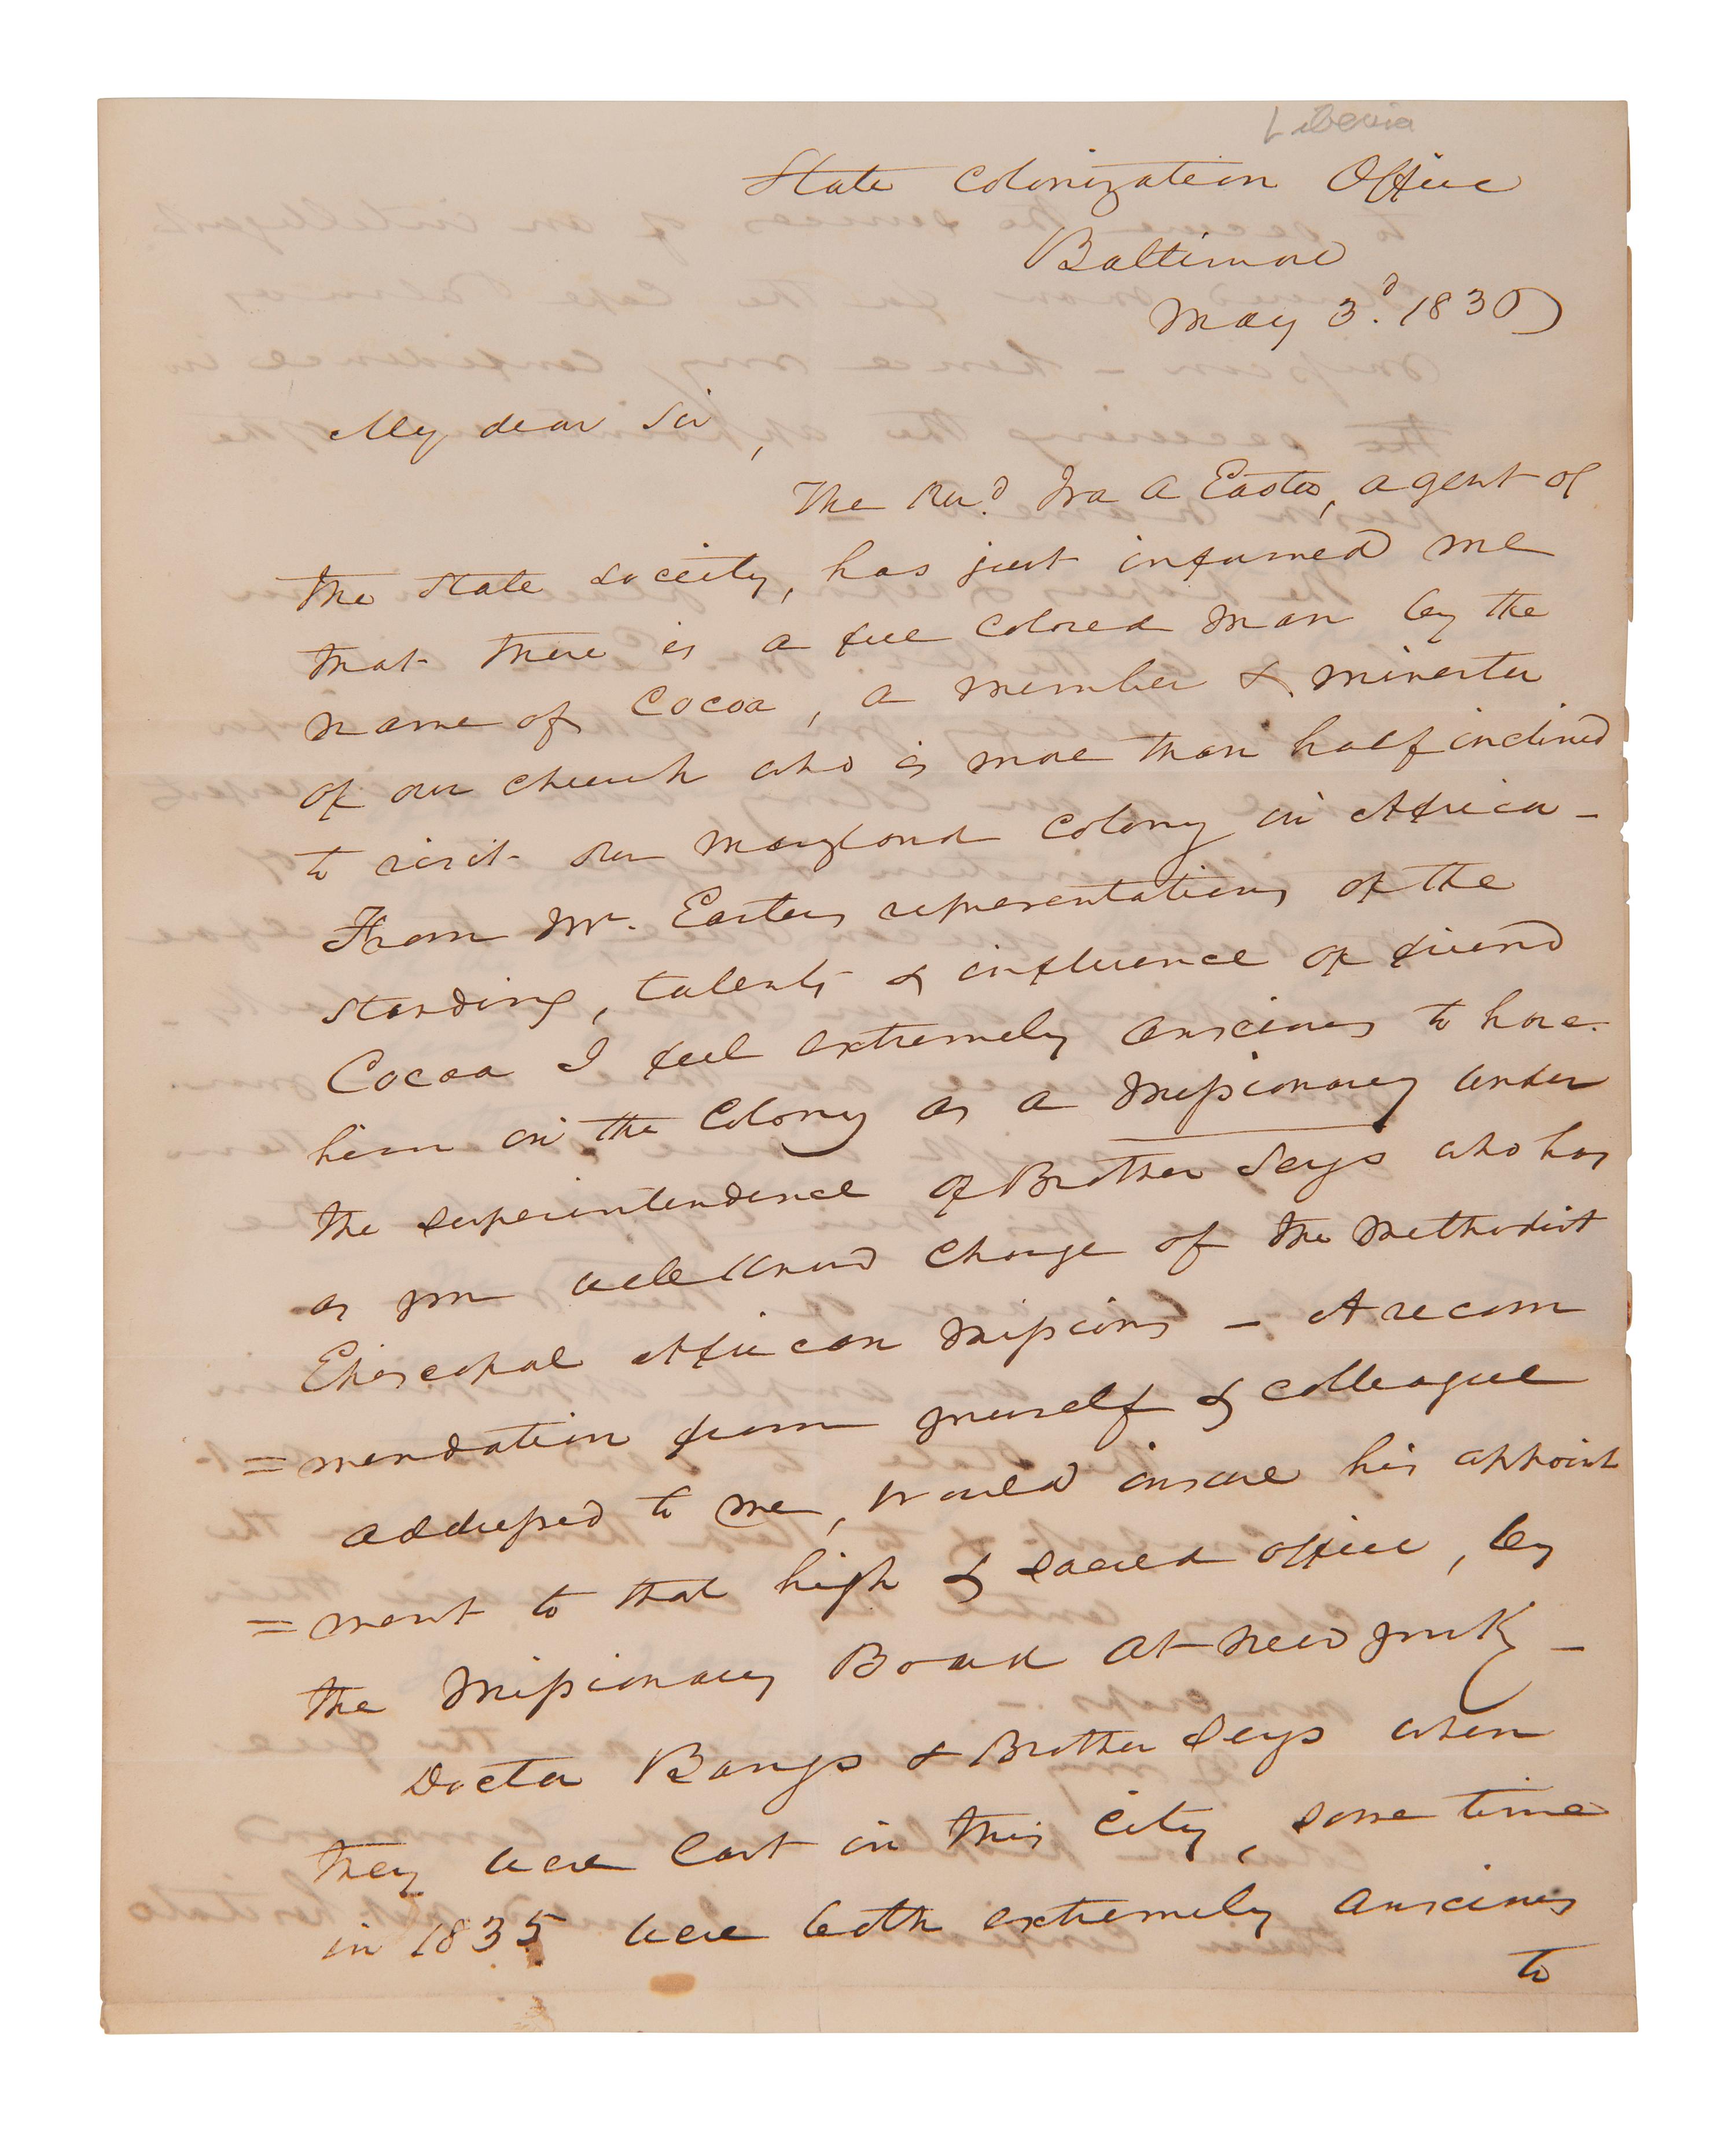 Liberia
State Colonization Office
Baltimore
May 3d. 1836
My dear Sir,
The Revd. Ira A Easter, agent of
the State Society, has just informed me
that there is a free colored man by the
name of Cocoa, a member & minister
of our church who is more than half inclined
to visit our Maryland Colony in Africa -
From Mr. Easters representations of the
standing, talents & influence of friend
Cocoa I feel extremely anxious to have
him in the Colony as a Missionary under
the superintendence of Brother Seys who has
as you well know charge of the Methodist
Episcopal African Missions - A recom
= mendation from yourself & colleague
addressed to me, would insure his appoint
= ment to that high & sacred office, by
the Missionary Board at New York -
Doctor Bangs & Brother Seys when
they were last in this City, some time
in 1835 were both extremely anxious
to